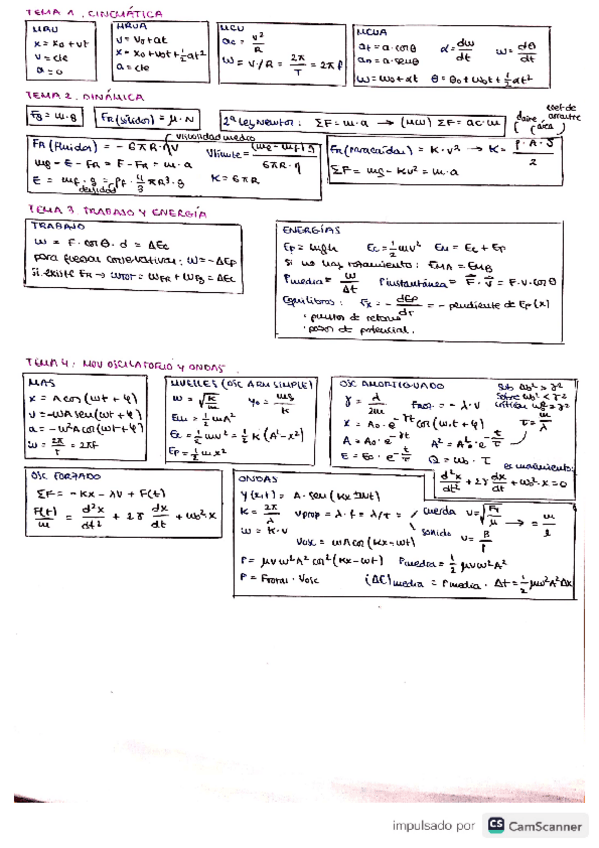 TEMA 1. CINEMÁTICA
MRU
x = x₀ + vt
v = cte
a = 0
MRUA
v = v₀ + at
x = x₀ + v₀t + ½at²
a = cte
MCU
ac = v²/R
ω = v/R = 2π/T = 2πf
MCUA
at = a·cosθ
an = a·senθ
α = dω/dt
ω = dθ/dt
ω = ω₀ + αt θ = θ₀ + ω₀t + ½αt²
TEMA 2. DINÁMICA
Fg = m·g
FR(sólidos) = μ·N
2ª Ley Newton: ΣF = m·a → (MCU) ΣF = ac·m
coef de arrastre
(área)
FR(fluidos) = -6πR·ηv
viscosidad medio
mg - E - FR = F - FR = m·a
E = mf·g = ρf·4/3πR³·g
densidad
vlímite = (mg - mf)g / 6πR·η
K = 6πR
FR(paracaídas) = K·v² → K = ρ·A·δ/2
ΣF = mg - Kv² = m·a
TEMA 3 TRABAJO Y ENERGÍA
TRABAJO
W = F·cosθ·d = ΔEc
para fuerzas conservativas: W = -ΔEp
si existe FR → WTOT = WFR + WFg = ΔEc
ENERGÍAS
Ep = mgh Ec = ½mv² Em = Ec + Ep
si no hay rozamiento: EMA = EMB
Pmedia = W/Δt Pinstantánea = F⃗·v⃗ = F·v·cosθ
Equilibrios: Fx = -dEp/dr = -pendiente de Ep(x)
· puntos de retorno
· pozos de potencial.
TEMA 4: MOV OSCILATORIO Y ONDAS
MAS
x = A cos(ωt + φ)
v = -ωA sen(ωt + φ)
a = -ω²A cos(ωt + φ)
ω = 2π/T = 2πf
MUELLES (OSC ARM SIMPLE)
ω = √(K/m) y₀ = mg/K
Em = ½ωA²
Ec = ½mv² = ½K(A² - x²)
Ep = ½mx²
OSC AMORTIGUADO
γ = λ/2m Famor. = -λ·v
x = A₀·e^-γt cos(ω,t + φ)
A = A₀·e^-γt A² = A₀²·e^-t/τ
E = E₀·e^-t/τ Q = ω₀·τ
Sub ωb² > γ²
Sobre ωb² < γ²
crítico ωb² = γ²
τ = m/λ
ec movimiento:
d²x/dt² + 2γ dx/dt + ω₀²·x = 0
OSC FORZADO
ΣF = -Kx - λv + F(t)
F(t)/m = d²x/dt² + 2γ dx/dt + ω₀²·x
ONDAS
y(x,t) = A·sen(Kx ± ωt)
K = 2π/λ vprop = λ·f = λ/T =
cuerda v = √(FT/μ) → = m/l
sonido v = B/ρ
ω = K·v
vosc = ωA cos(Kx - ωt)
P = μvω²A² cos²(Kx - ωt) Pmedia = ½μvω²A²
P = Ftotal·vosc (ΔE)media = Pmedia·Δt = ½μω²A²Δx
impulsado por CS CamScanner